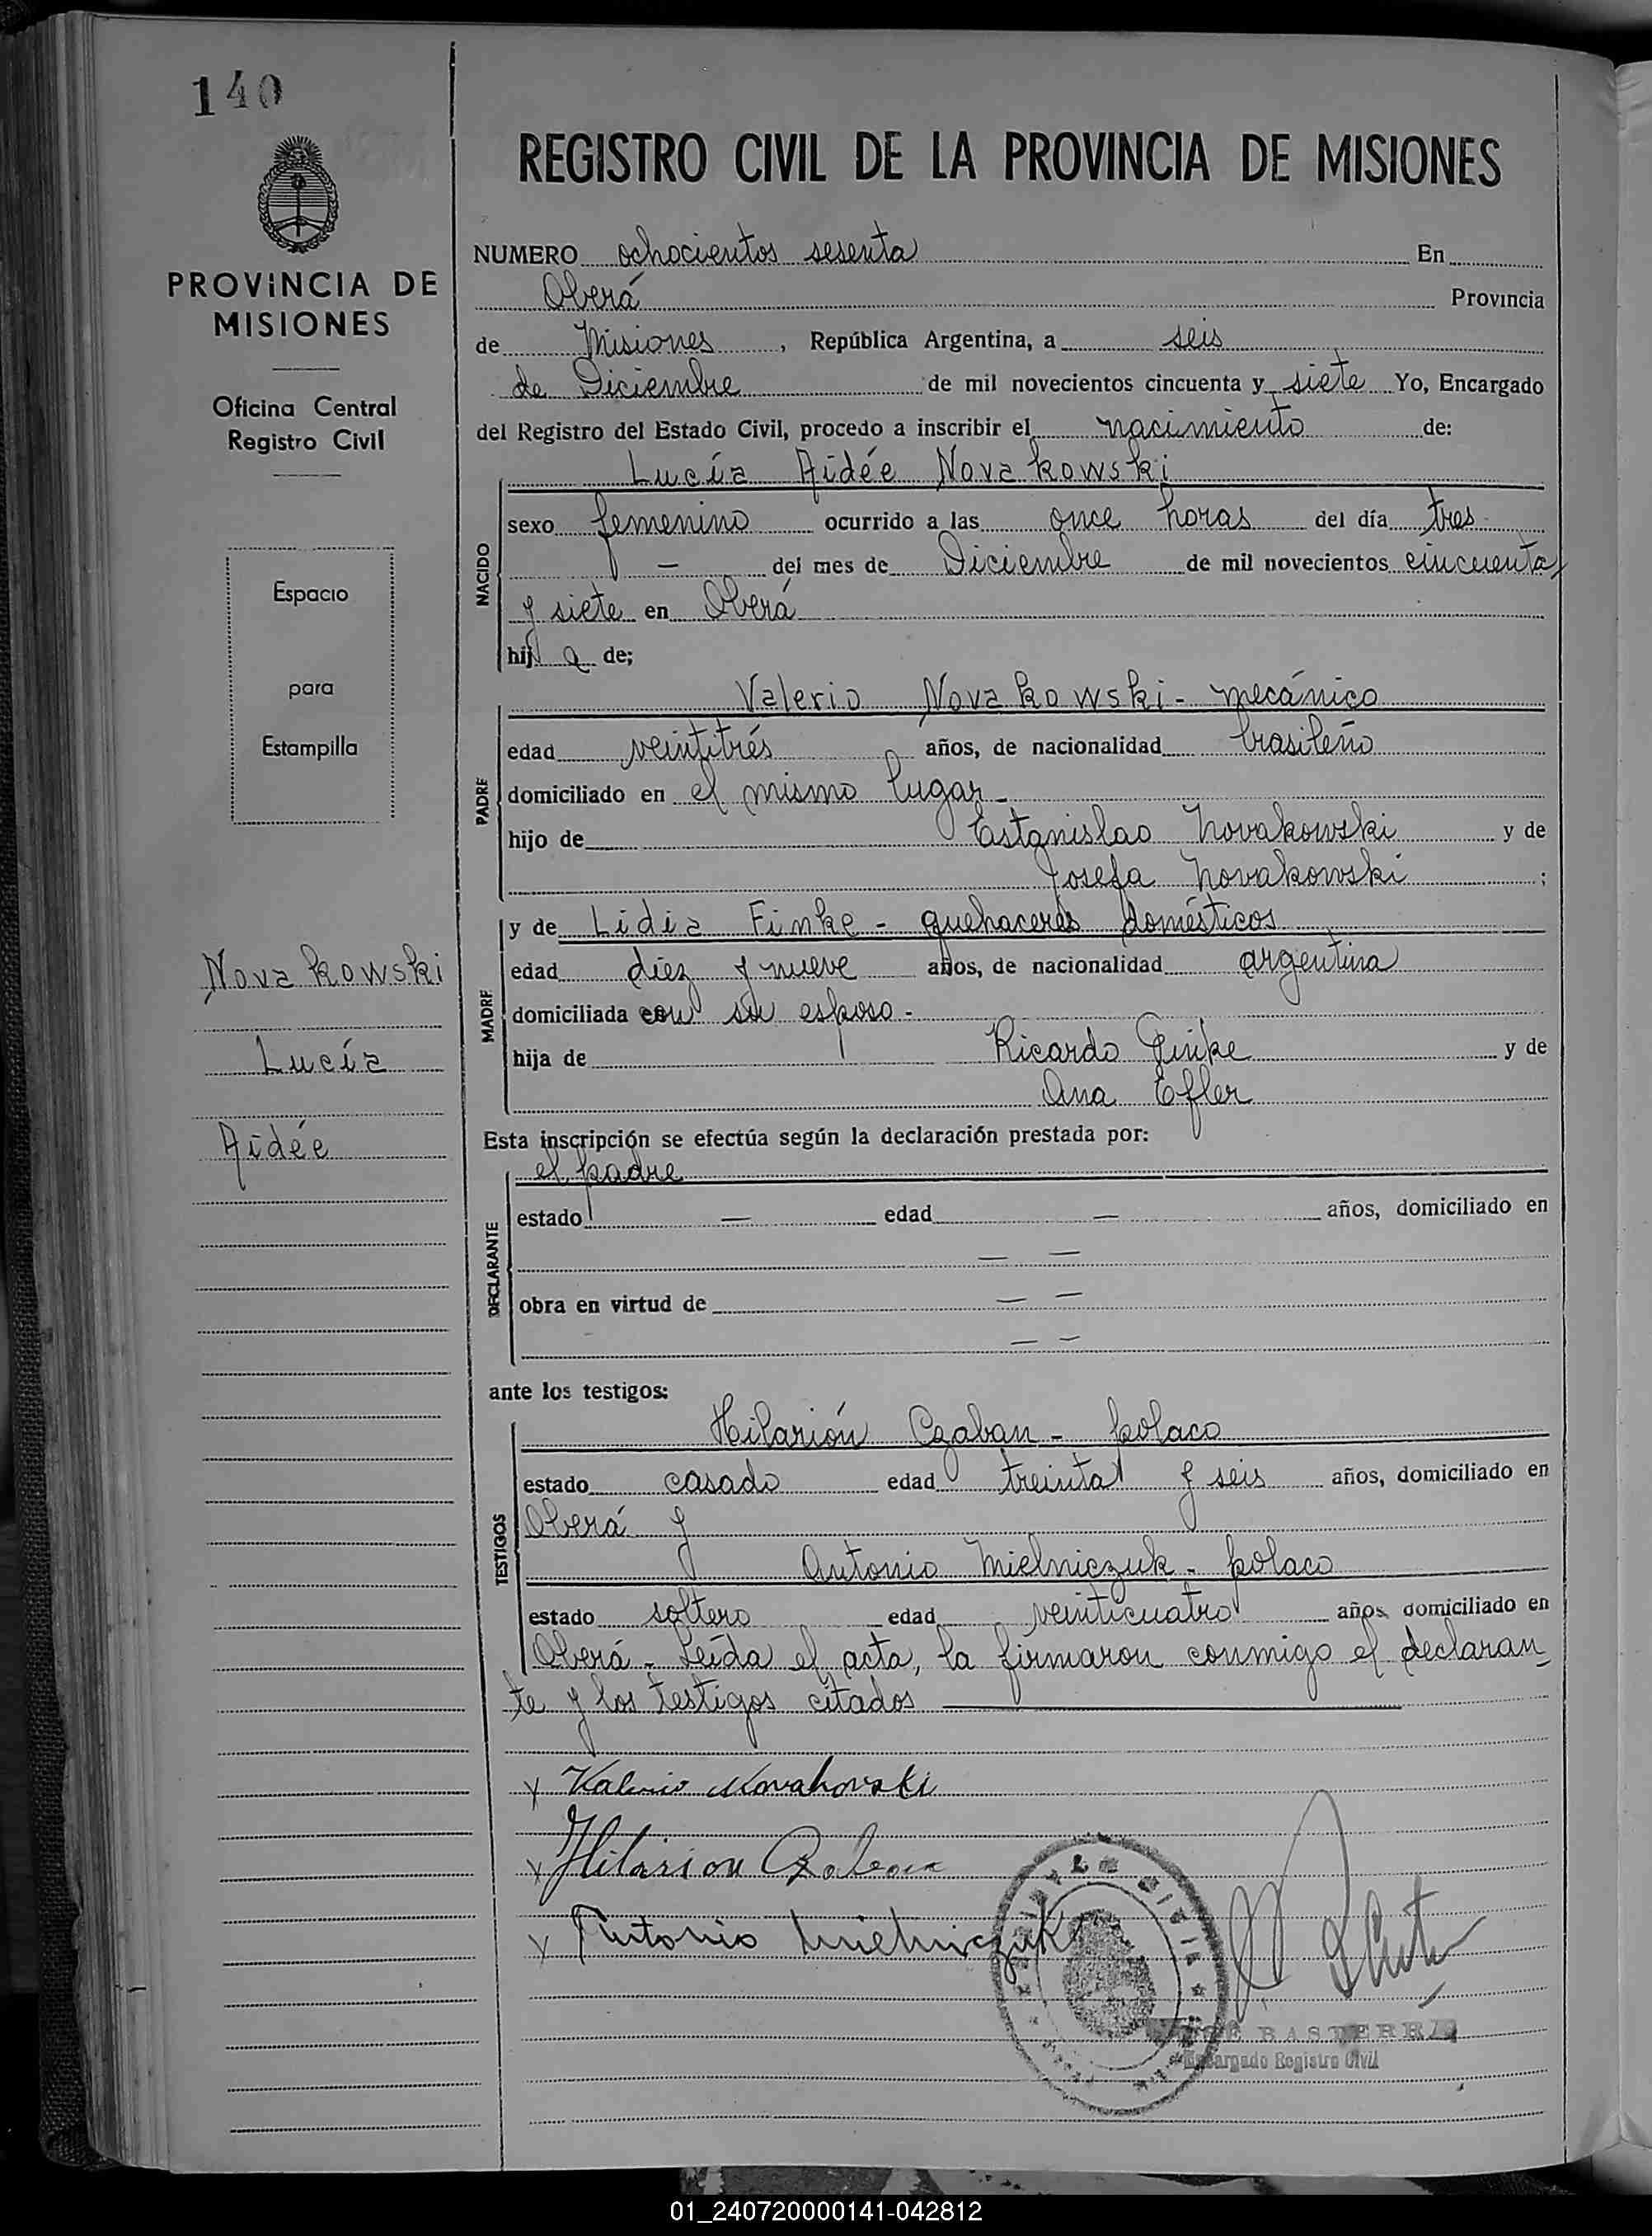 140
PROVINCIA DE
MISIONES
Oficina Central
Registro Civil
Espacio
para
Estampilla
Novakowski
Lucía
Aidée
REGISTRO CIVIL DE LA PROVINCIA DE MISIONES
NUMERO ochocientos sesenta En
Oberá Provincia
de Misiones, República Argentina, a seis
de Diciembre de mil novecientos cincuenta y siete Yo, Encargado
del Registro del Estado Civil, procedo a inscribir el nacimiento de:
Lucía Aidée Novakowski
NACIDO
sexo femenino ocurrido a las once horas del día tres
— del mes de Diciembre de mil novecientos cincuenta
y siete en Oberá
hija de;
Valerio Novakowski - mecánico
PADRE
edad veintitrés años, de nacionalidad brasileño
domiciliado en el mismo lugar -
hijo de Estanislao Novakowski y de
Josefa Novakowski ;
y de Lidia Finke - quehaceres domésticos
MADRE
edad diez y nueve años, de nacionalidad argentina
domiciliada con su esposo -
hija de Ricardo Finke y de
Ana Efler
Esta inscripción se efectúa según la declaración prestada por:
el padre
DECLARANTE
estado — edad — años, domiciliado en
— —
obra en virtud de — —
— —
ante los testigos:
Hilarión Czaban - polaco
TESTIGOS
estado casado edad treinta y seis años, domiciliado en
Oberá y
Antonio Mielniczuk - polaco
estado soltero edad veinticuatro años domiciliado en
Oberá - Leída el acta, la firmaron conmigo el declaran-
te y los testigos citados
x Valerio Novakovski
x Hilarion Czaban
x Antonio Mielniczuk
BASTERRA
Encargado Registro Civil
01_240720000141-042812